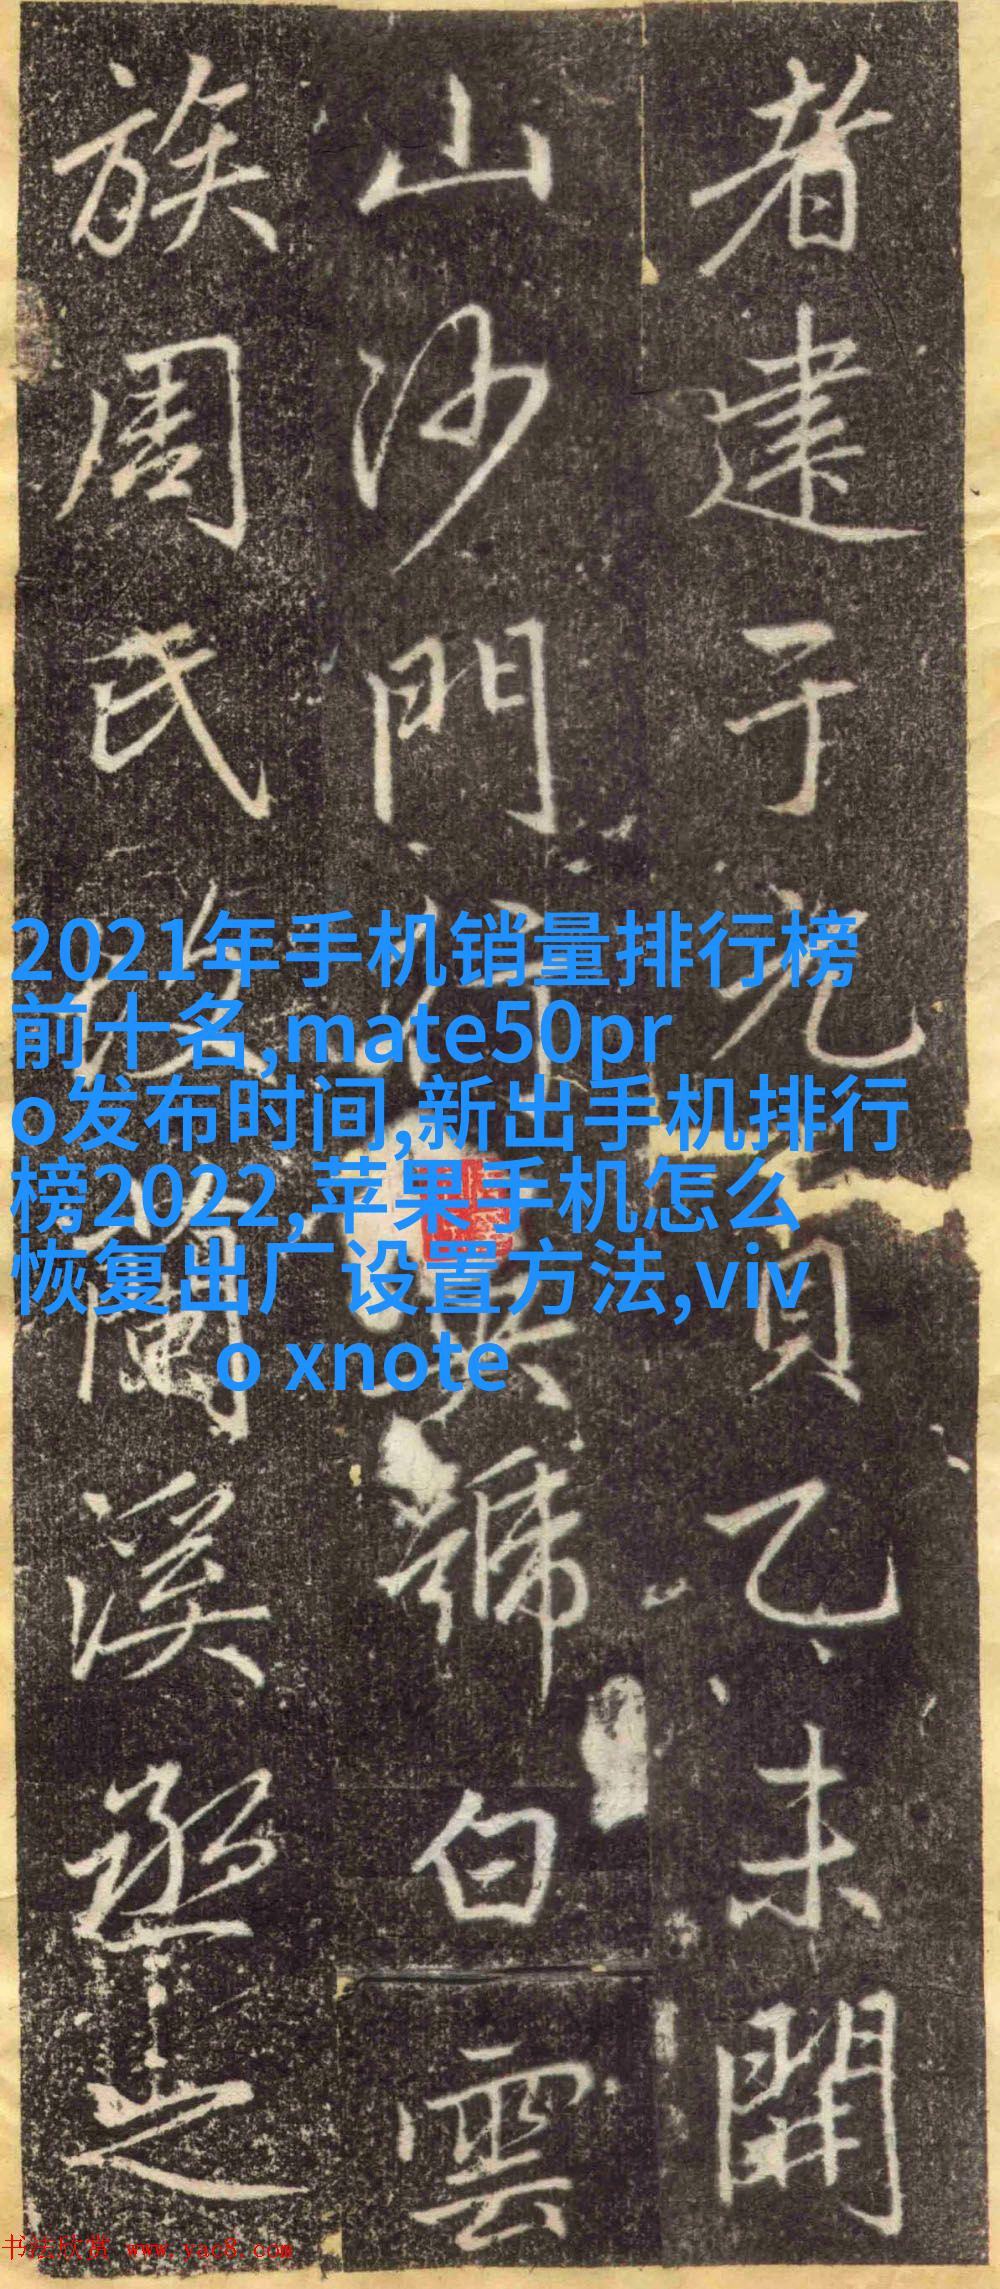 者建于光乙未開
山沙門號白雲
族周氏蘭溪丞之
2021年手机销量排行榜
前十名,mate50pr
o发布时间,新出手机排行
榜2022,苹果手机怎么
恢复出厂设置方法,viv
o xnote
书法欣赏 www.yac8.com